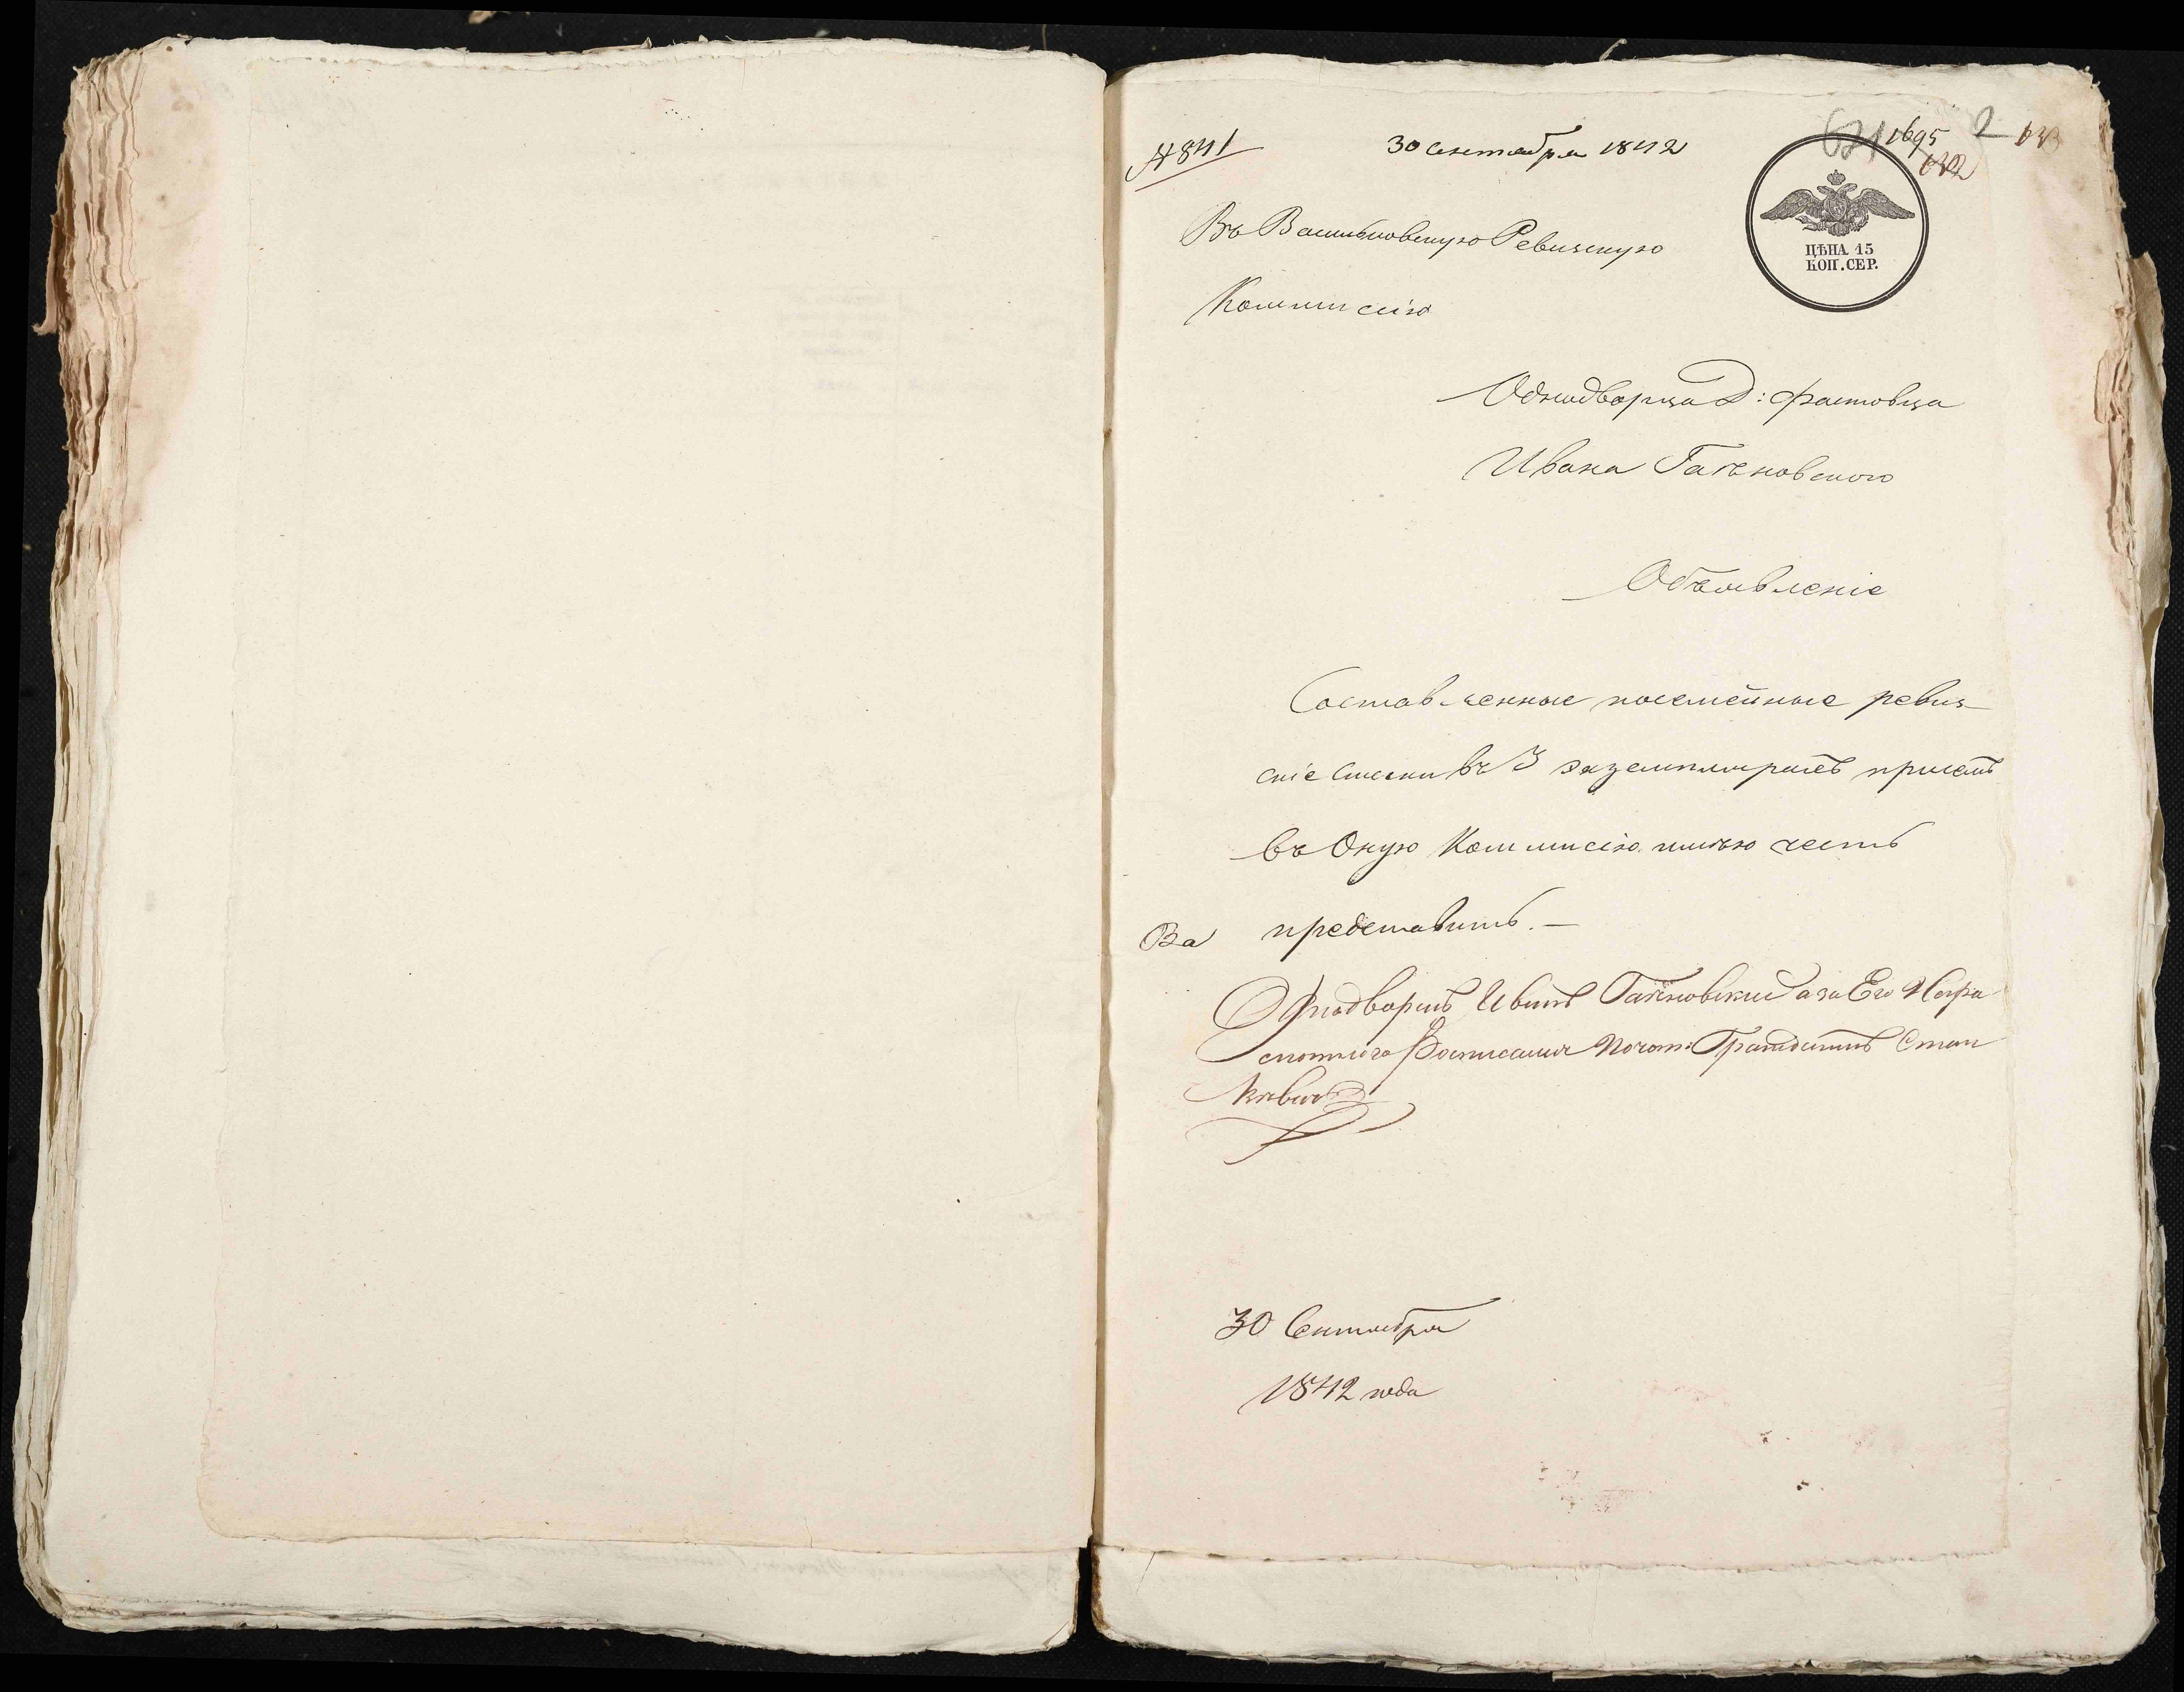 № 841
30 Сентября 1842
1695
2
632
ЦѢНА 15
КОП. СЕР.
Въ Васильковскую Ревизскую
Коммисію
Однодворца Д: Фастовца
Ивана Гаъновского
Объявленіе
Составленные посемейные ревиз-
скіе Сказки въ 3 экземплярахъ при семъ
въ Оную Коммисію имѣю честь
представить. —
Однодворецъ Иванъ Гаъновскій а за Его Негра
мотного Росписался Почот: Гражданинъ Стан
кевичъ
30 Сентября
1842 года